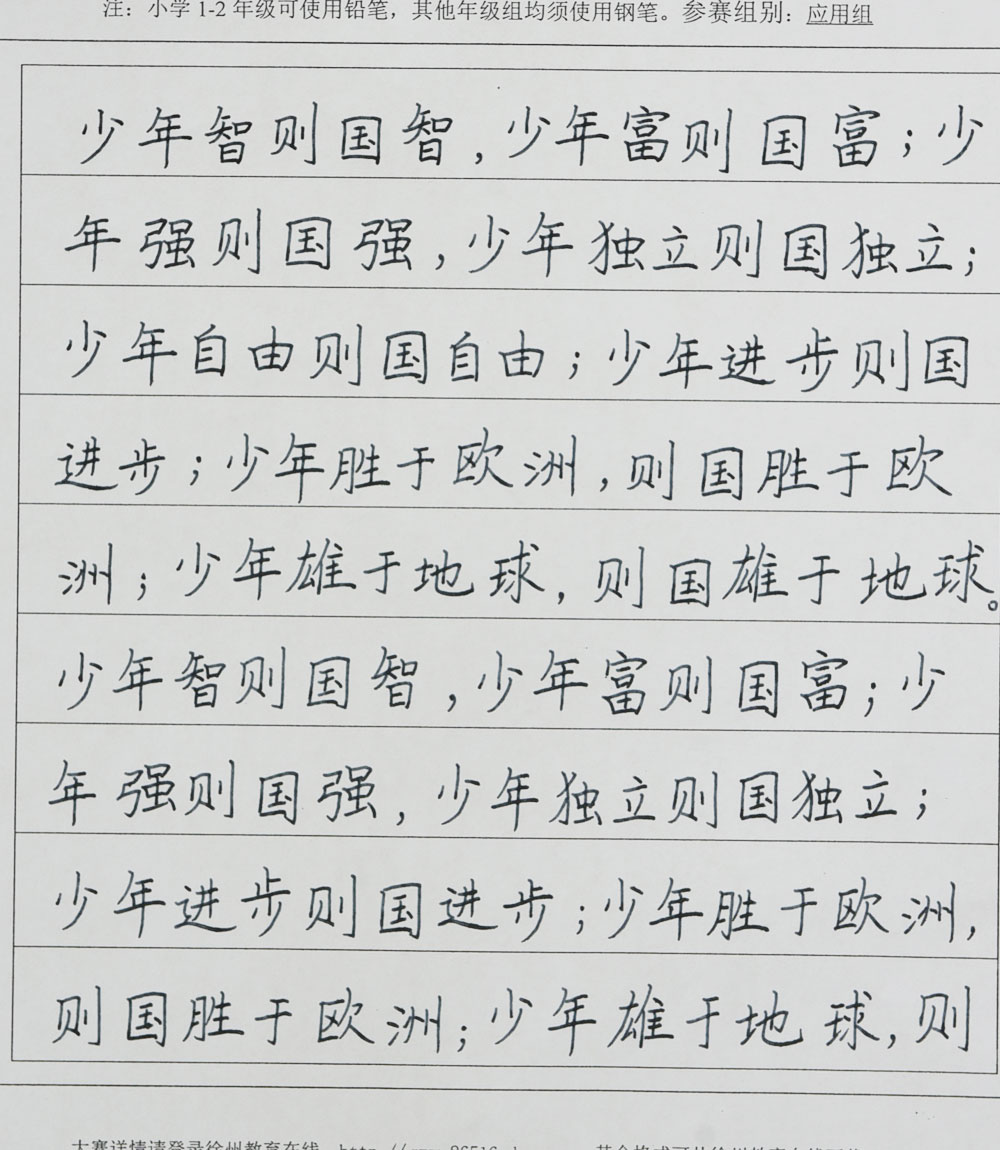 注：小学 1-2 年级可使用铅笔，其他年级组均须使用钢笔。参赛组别：应用组
少年智则国智，少年富则国富；少
年强则国强，少年独立则国独立；
少年自由则国自由；少年进步则国
进步；少年胜于欧洲，则国胜于欧
洲；少年雄于地球，则国雄于地球。
少年智则国智，少年富则国富；少
年强则国强，少年独立则国独立；
少年进步则国进步；少年胜于欧洲，
则国胜于欧洲；少年雄于地球，则
大赛详情请登录徐州教育在线